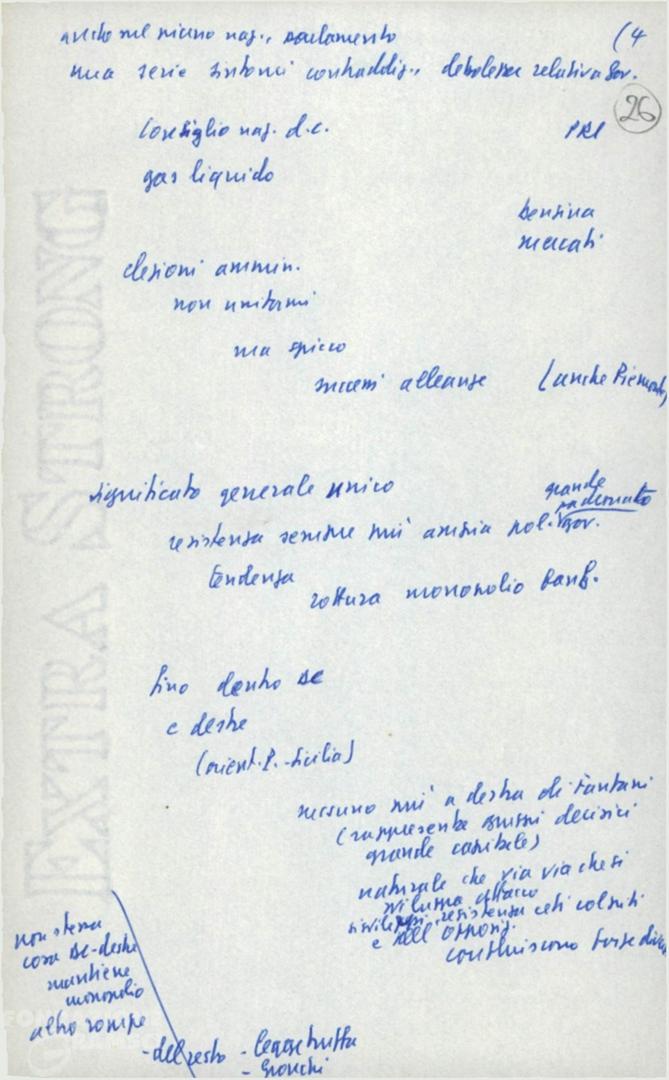 anche nel piano naz., parlamento (4
una serie sintomi contraddiz., debolezza relativa gov.
26
Consiglio naz. d.c. PRI
gas liquido
benzina
mercati
elezioni ammin.
non uniformi
ma spicco
nuove alleanze (anche Piemonte)
significato generale unico
grande
padronato
resistenza sempre più ampia pol. gov.
tendenza
rottura monopolio Fanf.
fino dentro DC
e destre
(orient. P. - Sicilia)
nessuno più a destra di Fanfani
(rappresenta gruppi decisivi
grande capitale)
naturale che via via che si
sviluppa attacco
resistenza ceti colpiti
e dell'opposiz.
costituiscono forse
non stessa
cosa DC-destre
mantiene
monopolio
altro rompe
- del resto - legge truffa
- Gronchi
EXTRA STRONG